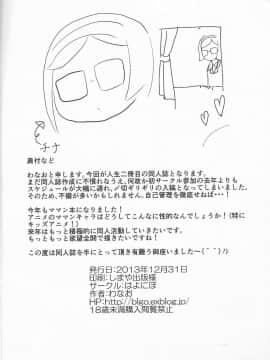 チナ
奥付など
わなおと申します。今回が人生二冊目の同人誌となります。
まだ同人誌作成に不慣れなうえ、何故か初サークル参加の去年よりも
スケジュールが大幅に遅れ、〆切ギリギリの入稿となってしまいました。
そのため、不備が多いかもしれません。自己管理を徹底せねば・・・!
今年もママン本になりました!
アニメのママンキャラはどうしてこんなに性的なんでしょうか!(特に
キッズアニメ!)
来年はもっと積極的に同人活動していきたいです。
もっともっと欲望全開で描きたいですね!
この度は同人誌を手にとって頂き有難う御座いました〜(^^)ノシ
発行日:2013年12月31日
印刷:しまや出版様
サークル:はよにほ
作者:わなお
HP:http://blgo.exblog.jp/
18歳未満購入閲覧禁止